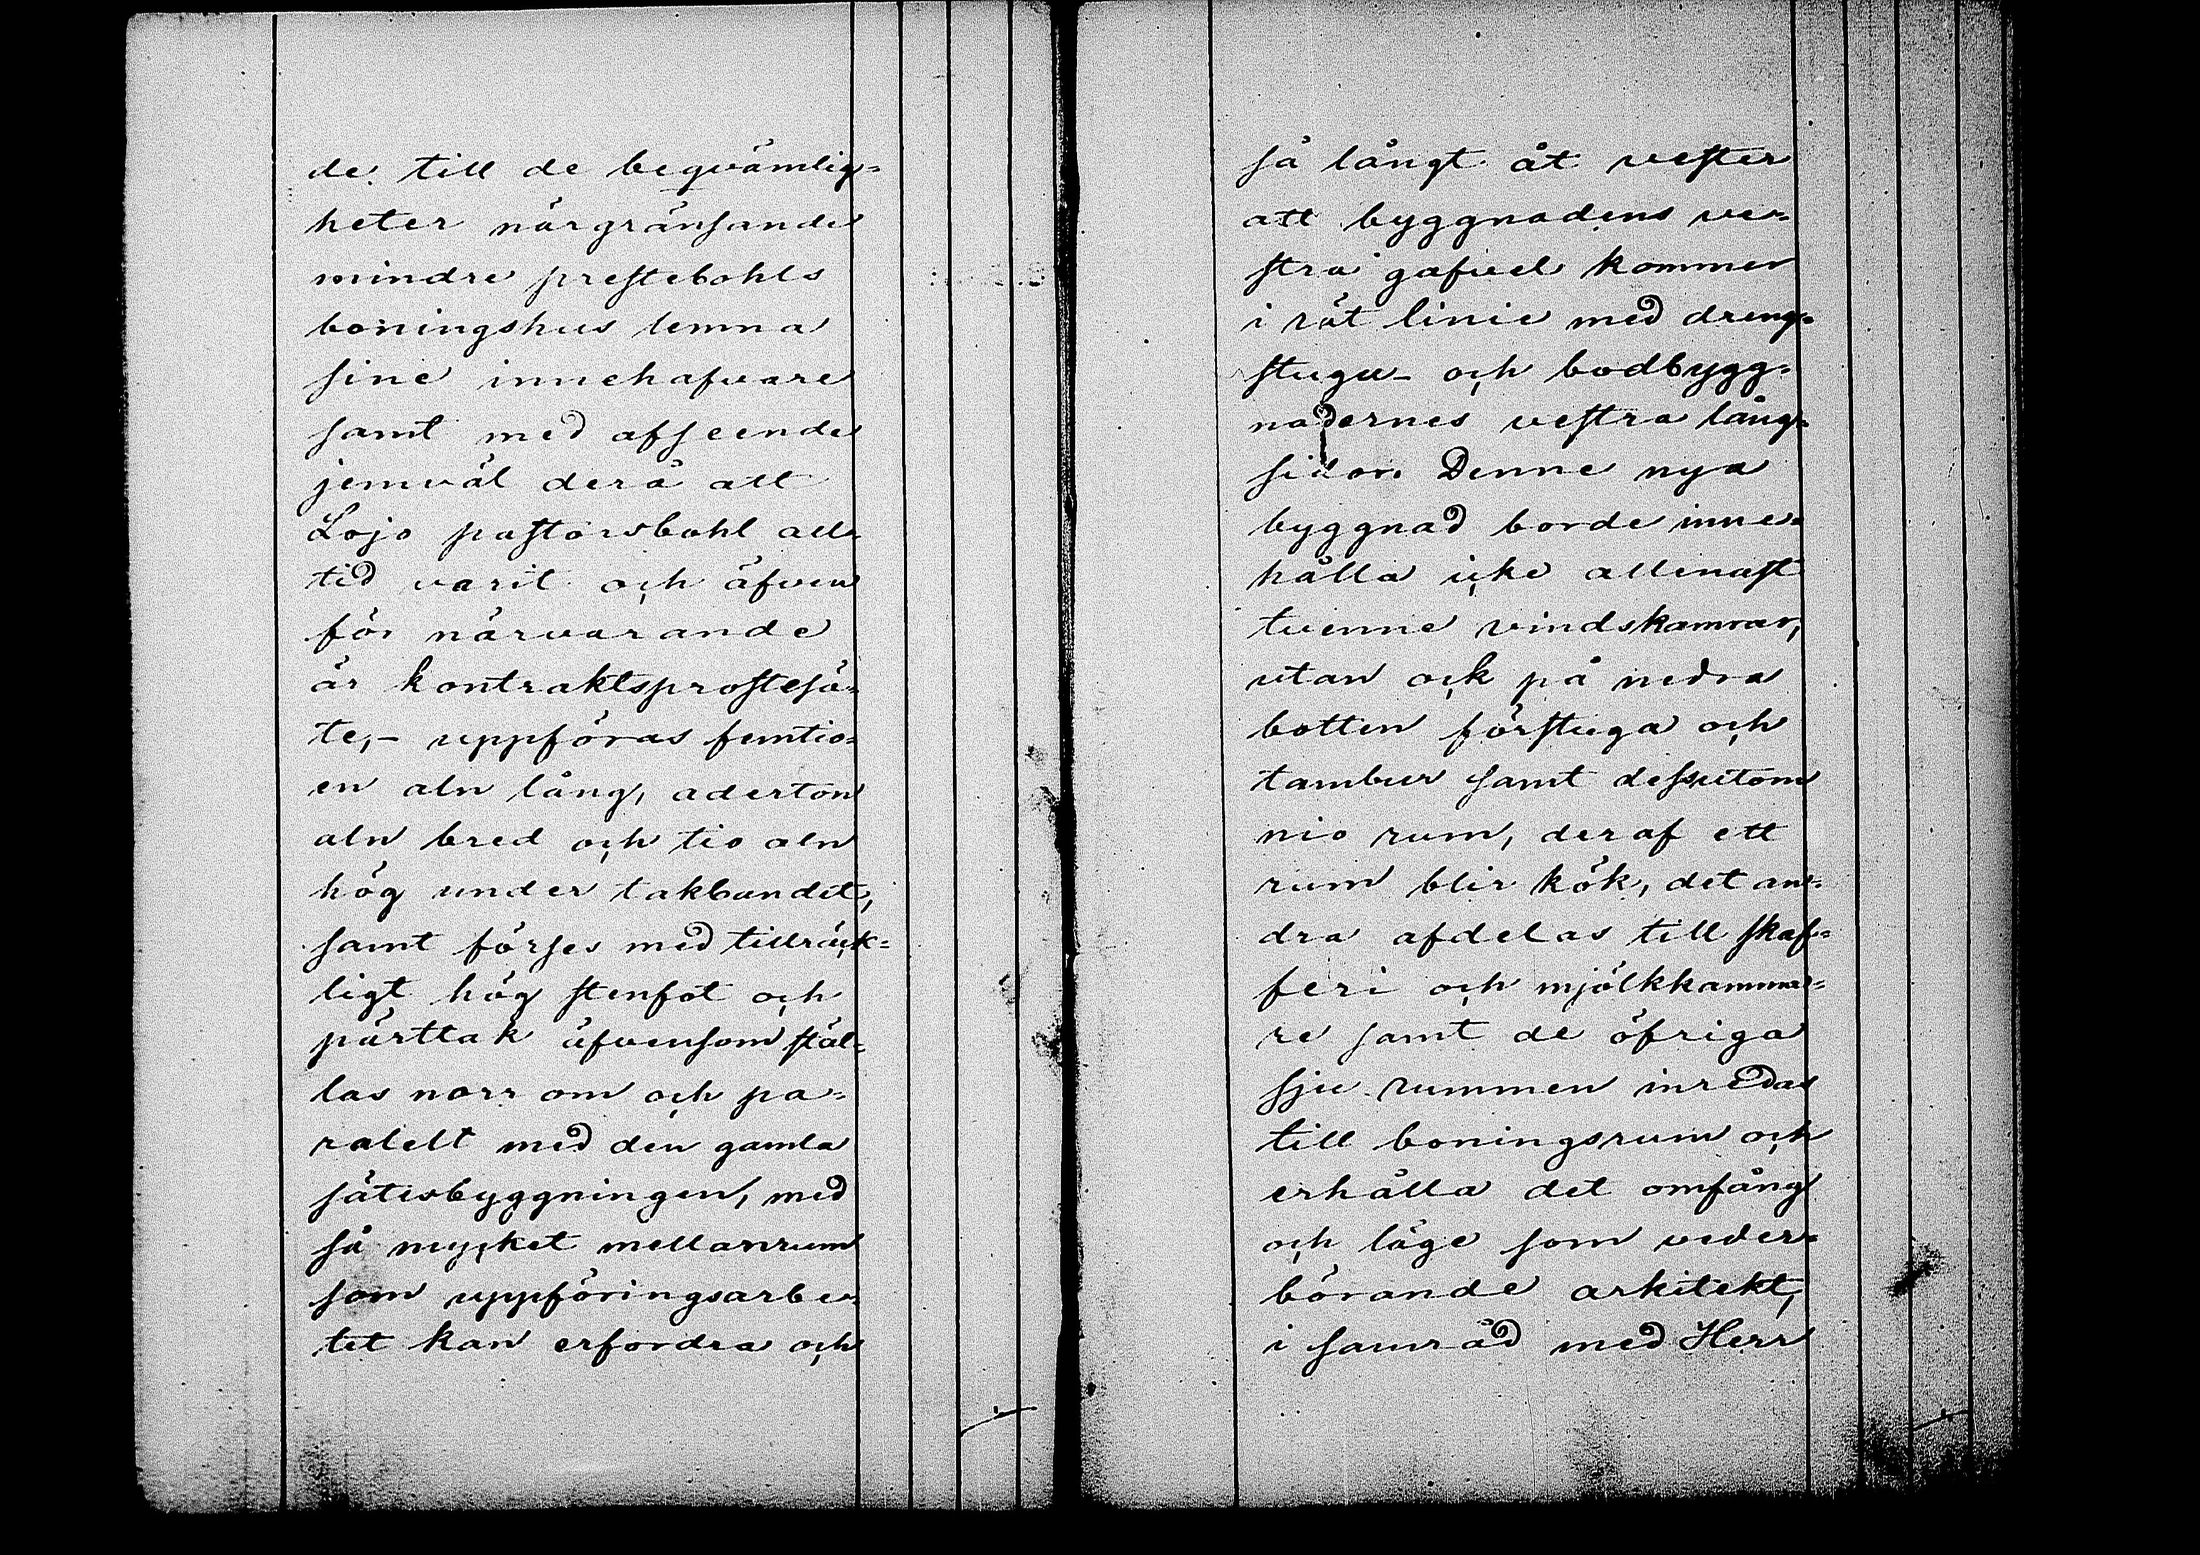 de till de beqvämlig=
heter närgränsande
mindre prestebohls
boningshus lemna
sine innehafvare
samt med afseende
jemväl derå att
Lojo pastorsbohl all=
tid varit och äfven
för närvarande
är kontraktsprostesä=
te,- uppföras femtio=
en aln lång, aderton
aln bred och tio aln
hög under takbandet,
samt förses med tillräck=
ligt hög stenfot och
pärttak äfvensom stäl=
las norr om och pa=
ralelt med den gamla
sätesbyggningen, med
så mycket mellanrum
som uppföringsarbe=
tet kan erfordra och
så långt åt vester
att byggnadens ve=
stra gafvel kommer
i rät linie med dreng=
stugu- och bodbygg=
nadernes vestra lång=
sidor. Denne nya
byggnad borde inne=
hålla icke allenast
tvenne vindskamrar,
utan ock på nedra
botten förstuga och
tambur samt dessutom
nio rum, deraf ett
rum blir kök, det an=
dra afdelas till skaf=
feri och mjölkkamma=
re samt de öfriga
sju rummen inredas
till boningsrum och
erhålla det omfång
och läge som veder=
börande arkitekt,
i samråd med Herr